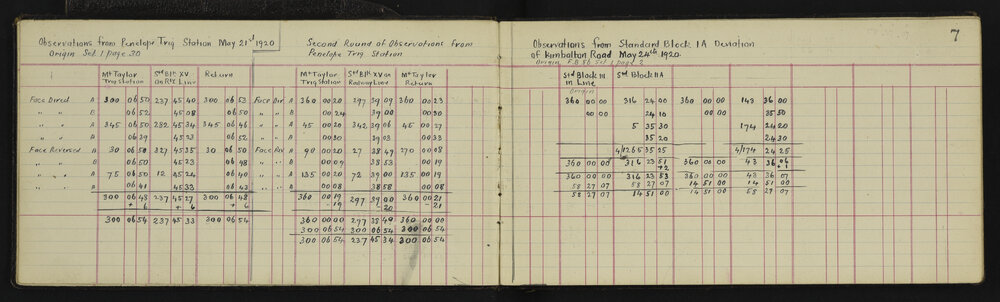 7
Observations from Penelope Trig Station May 21st 1920
Origin Set 1 page 30
Mt Taylor Trig Station | Std Blk XV on Rly Line | Return
Face Direct A 300 06 50 237 45 40 300 06 53
" " B 06 52 45 08 06 50
" " A 345 06 50 282 45 34 345 06 46
" " B 06 39 45 23 06 52
Face Reversed A 30 06 50 327 45 35 30 06 50
" " B 06 50 45 23 06 48
" " A 75 06 50 12 45 24 06 40
" " B 06 41 45 33 06 43
300 06 48 237 45 27 300 06 48
+ 6 + 6 + 6
300 06 54 237 45 33 300 06 54
Second Round of Observations from
Penelope Trig Station
Mt Taylor Trig Station | Std Blk XV on Railway Line | Mt Taylor Return
Face Dir A 360 00 20 297 39 09 360 00 23
" " B 00 24 39 00 00 30
" " A 45 00 20 342 39 06 45 00 27
" " B 00 30 39 03 00 33
Face Rev A 90 00 20 27 38 49 270 00 08
" " B 00 09 38 53 00 19
" " A 135 00 20 72 39 00 135 00 19
" " B 00 08 38 58 00 08
360 00 19 297 39 00 360 00 21
- 19 - 20 - 21
360 00 00 297 38 40 360 00 00
300 06 54 300 06 54 300 06 54
300 06 54 237 45 34 300 06 54
Observations from Standard Block 1A Deviation
of Kimbolton Road May 24th 1920
Origin F.B 86 Set 1 page 2
Std Block III in Line | Std Block IIA
Origin
360 00 00 316 24 00 360 00 00 143 36 00
00 00 24 10 00 00 35 50
5 35 30 174 24 20
35 20 24 30
4/1265 35 25 4/174 24 25
360 00 00 316 23 51 360 00 00 43 36 06
+2 +1
360 00 00 316 23 53 360 00 00 43 36 07
58 27 07 58 27 07 14 51 00 14 51 00
58 27 07 14 51 00 14 51 00 58 27 07